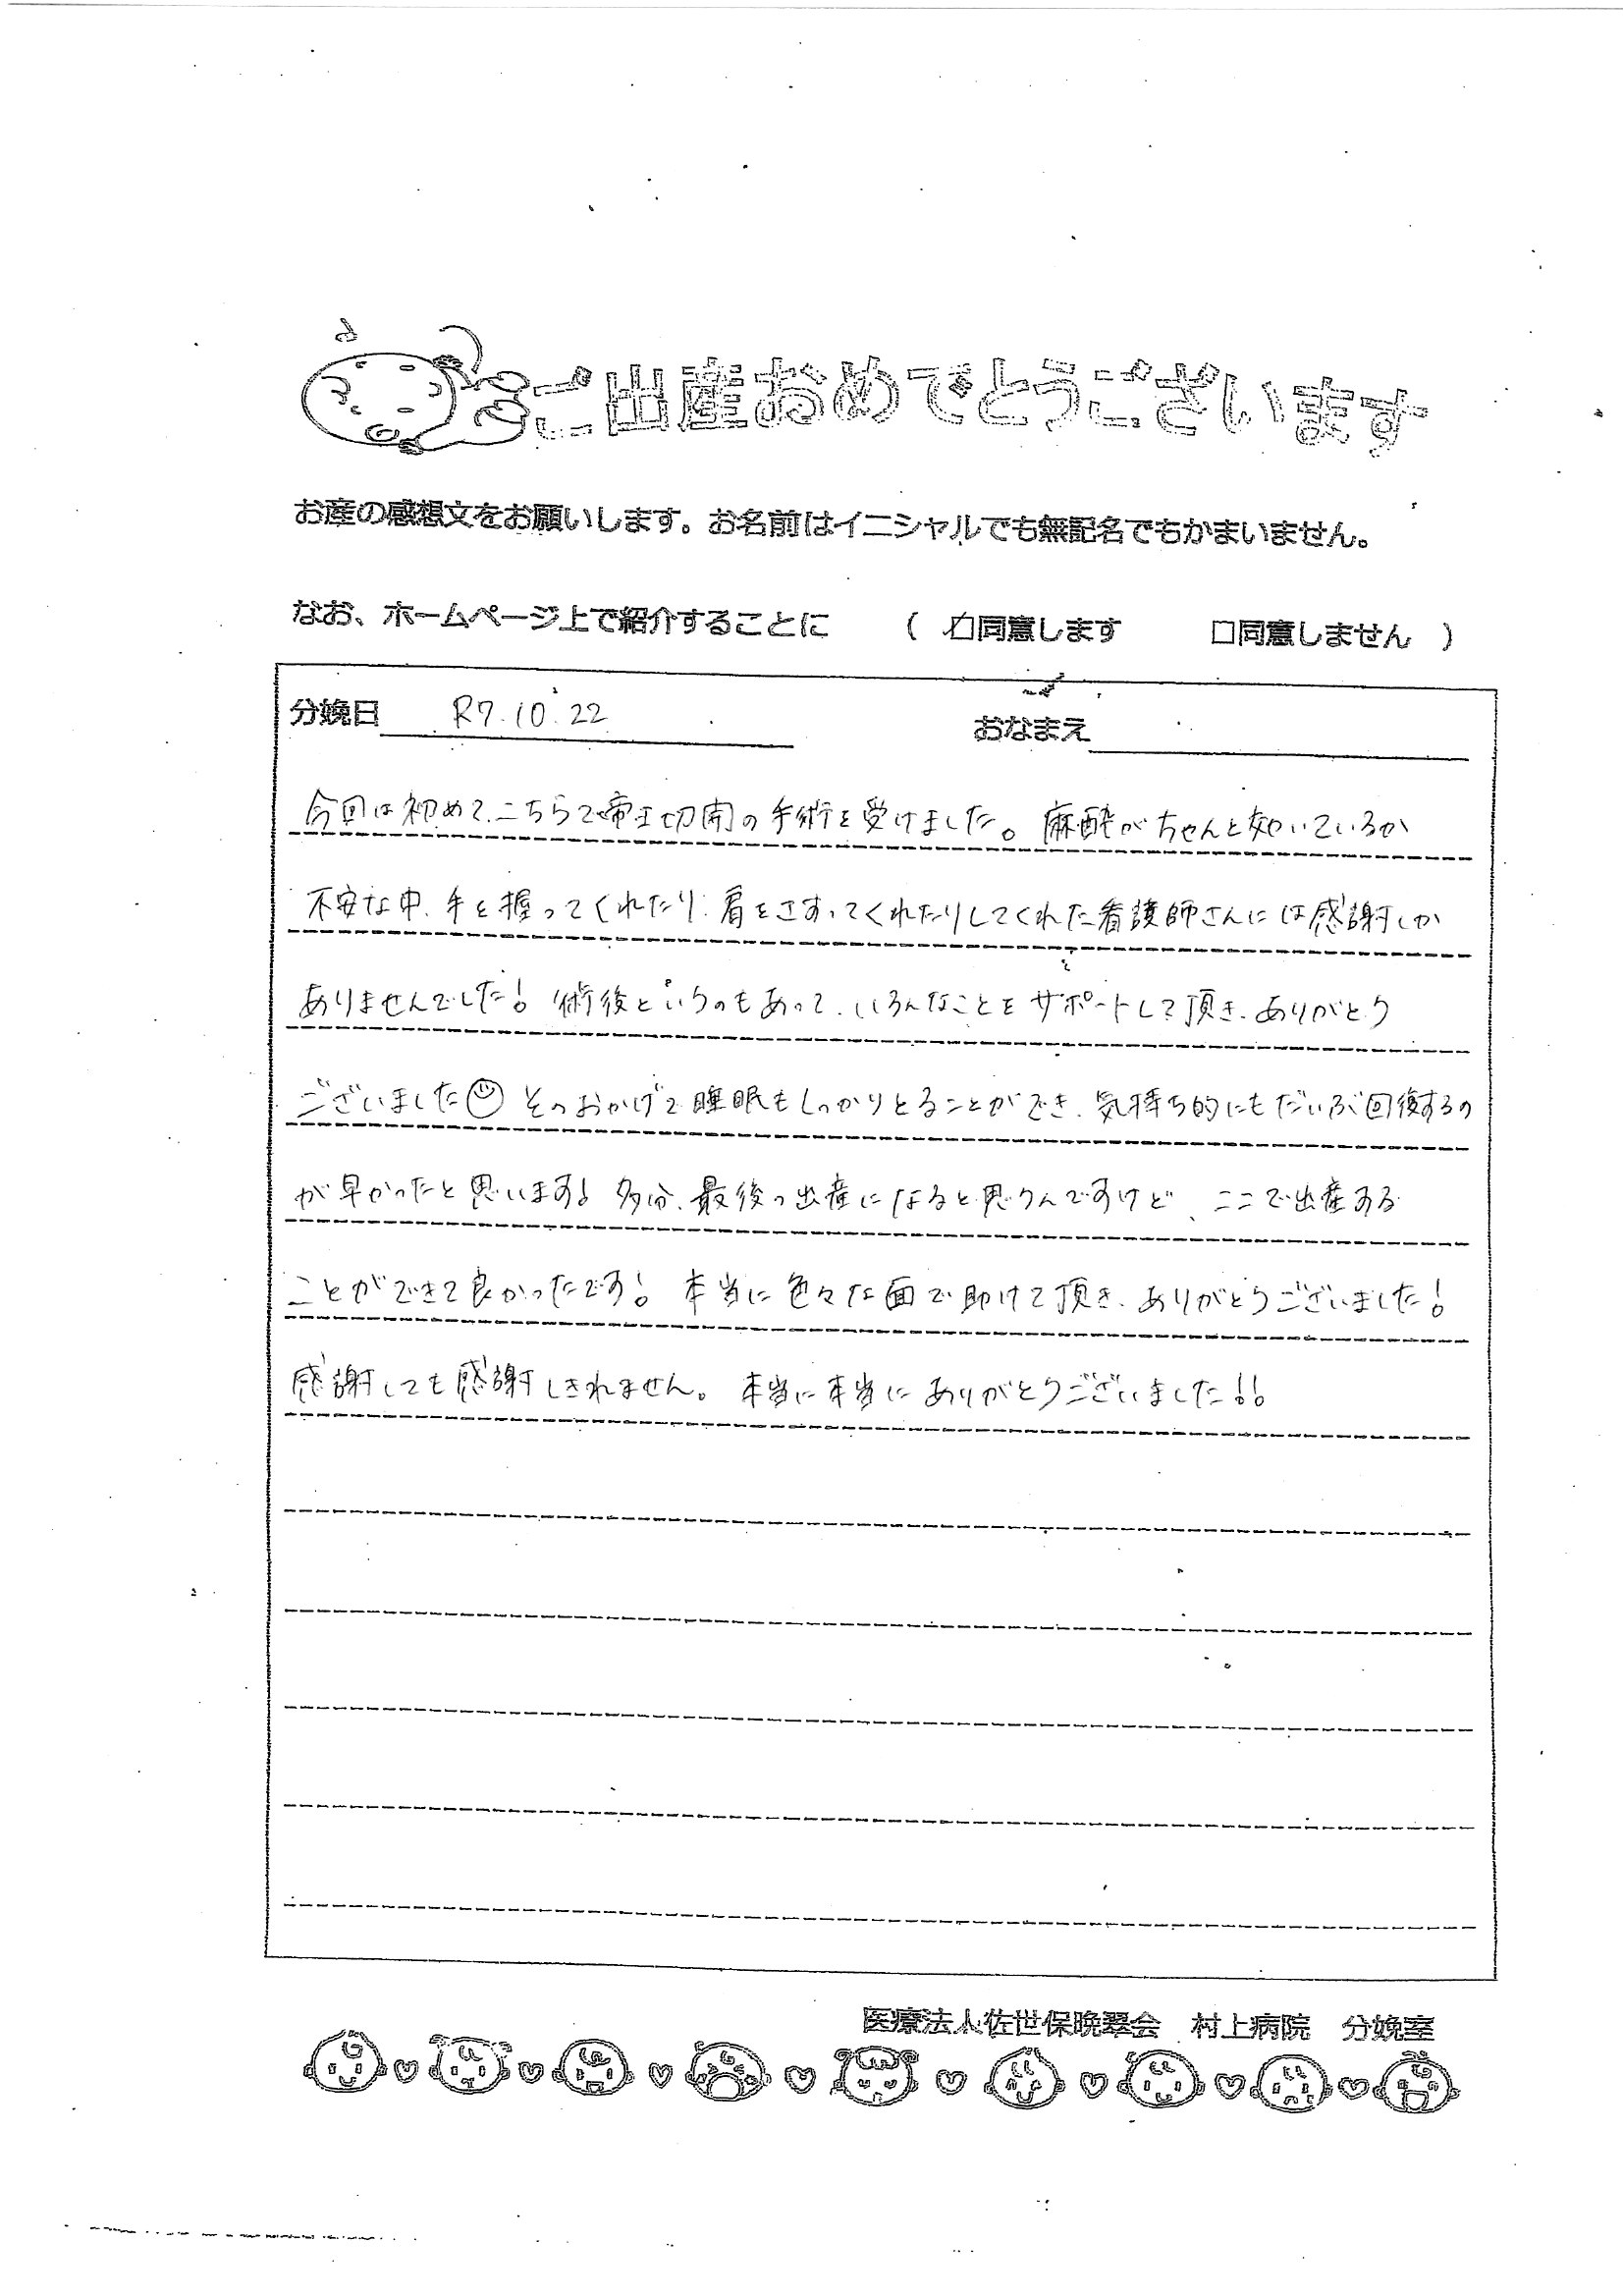 ご出産おめでとうございます
お産の感想文をお願いします。お名前はイニシャルでも無記名でもかまいません。
なお、ホームページ上で紹介することに （ ☑同意します □同意しません ）
分娩日 R7.10.22 おなまえ
今回は初めて、こちらで帝王切開の手術を受けました。麻酔がちゃんと効いているか
不安な中、手を握ってくれたり、肩をさすってくれたりしてくれた看護師さんには感謝しか
ありませんでした！術後というのもあって、いろんなことをサポートして頂き、ありがとう
ございました☺そのおかげで睡眠もしっかりとることができ、気持ち的にもだいぶ回復するの
が早かったと思います！多分、最後の出産になると思うんですけど、ここで出産する
ことができて良かったです！本当に色々な面で助けて頂き、ありがとうございました！
感謝しても感謝しきれません。本当に本当にありがとうございました！！
医療法人佐世保晩翠会 村上病院 分娩室